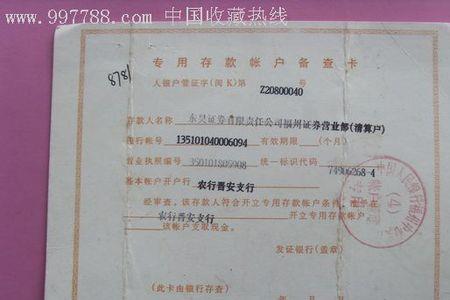 www.997788.com 中国收藏热线
专用存款帐户备查卡
878/
人银户管证字(闽K)第 Z20800040 号
存款人名称 东吴证券有限责任公司福州证券营业部(清算户)
银行帐号 135101040006094 有效期限 (个月)
营业执照编号 350101805908 统一标识代码 74906268-4
基本帐户开户行 农行晋安支行
经审查,该存款人符合开立专用存款帐户条件,准予在
农行晋安支行 开立专用存款帐户,
该帐户 支取现金。
发证银行(盖章)
年 月 日
(此卡由银行存查)